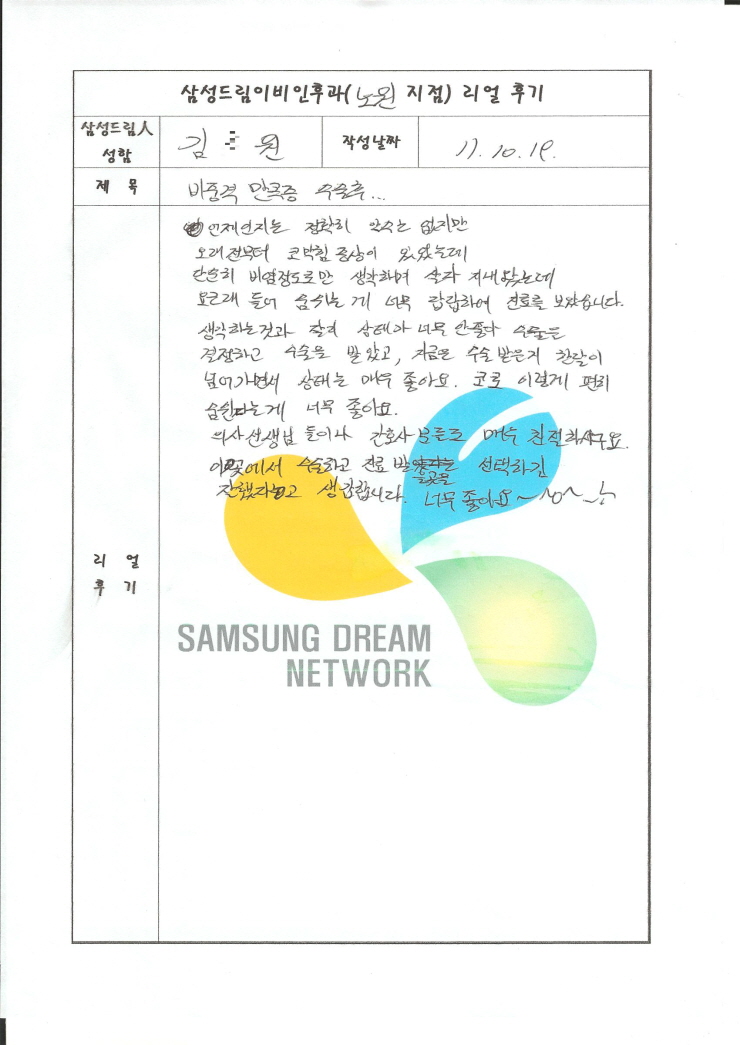 삼성드림이비인후과(노원 지점) 리얼 후기
삼성드림人
성함
김 원
작성날짜
11. 10. 19.
제 목
비중격 만곡증 수술후...
언제인지는 정확히 알수는 없지만
오래전부터 코막힘 증상이 있었는데
단순히 비염정도로만 생각하며 살다 지내왔는데
요근래 들어 숨쉬는 게 너무 답답하여 진료를 보았습니다.
생각하는것과 달리 상태가 너무 안좋다 수술을
결정하고 수술을 받았고, 지금은 수술 받은지 한달이
넘어가면서 상태는 매우 좋아요. 코로 이렇게 편히
숨쉰다는게 너무 좋아요.
의사선생님 들이나 간호사분들도 매우 친절하시구요.
이곳에서 수술하고 진료 받 선택하긴
잘했다고 생각합니다. 너무 좋아요~
리 얼
후 기
SAMSUNG DREAM
NETWORK